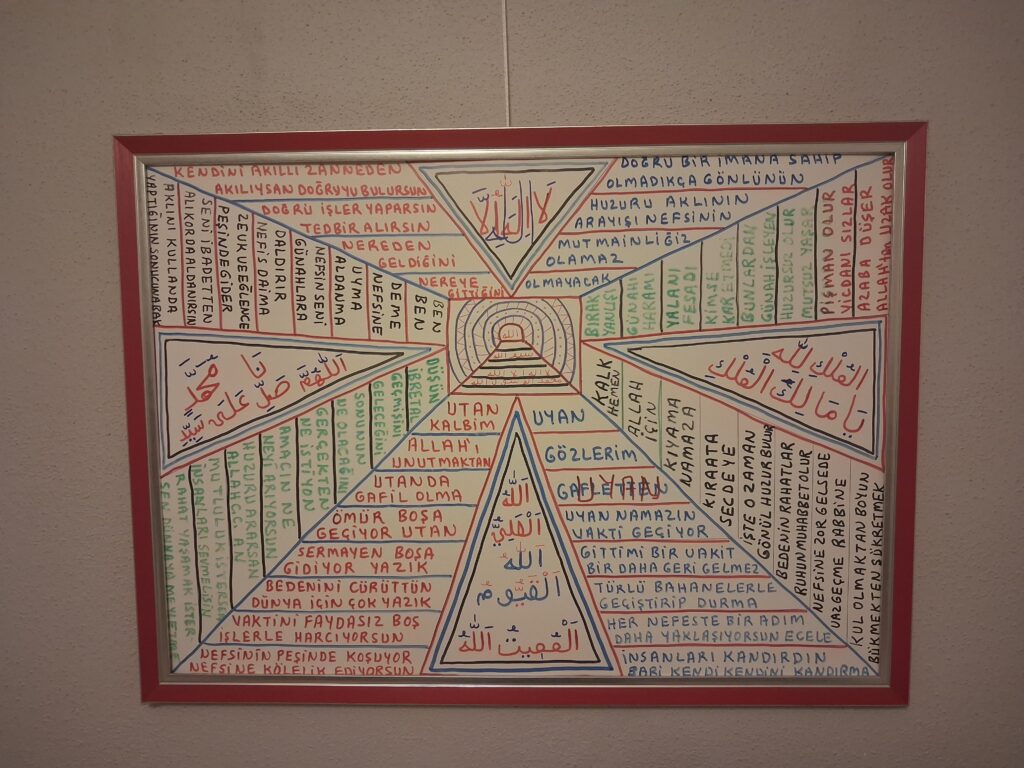 KENDİNİ AKILLI ZANNEDEN
AKILIYSAN DOĞRUYU BULURSUN
DOĞRU İŞLER YAPARSIN
TEDBİR ALIRSIN
NEREDEN
GELDİĞİNİ
NEREYE
GİTTİĞİNİ
DOĞRU BİR İMANA SAHİP
OLMADIKÇA GÖNLÜNÜN
HUZURU AKLININ
ARAYIŞI NEFSİNİN
MUTMAİNLİĞİZ
OLAMAZ
OLMAYACAK
YAPTIĞININ SONUCUNA BAK
AKLINI KULLANDA
ALİKORDA ALDANIRSIN
SENİ İBADETTEN
PEŞİNDE GİDER
ZEVK VE EĞLENCE
NEFİS DAİMA
DALDIRIR
GÜNAHLARA
NEFSİN SENİ
ALDANMA
UYMA
NEFSİNE
DEME
BEN
BEN
BIRAK
YANLIŞI
GÜNAHI
HARAMI
YALANI
FESADI
KİMSE
BUNLARDAN
GÜNAH İŞLEYEN
HUZURSUZ OLUR
MUTSUZ YAŞAR
PİŞMAN OLUR
VİCDANI SIZLAR
AZABA DÜŞER
ALLAH'IN UZAK OLUR
لا إله إلا الله
اللهم صل على سيدنا محمد
الملك لله
يا مالك الملك
الله
الله
الْقَيُّومُ
الْمُقِيتُ الله
DÜŞÜN
İBRET AL
GEÇMİŞİNİ
GELECEĞİNİ
SONUNUN
NE OLACAĞINI
GERÇEKTEN
NE İSTİYON
AMACIN NE
NEYİ ARIYORSUN
HUZURU ARARSAN
MUTLULUK İSTERSEN
İNSANLARI SEVMELİSİN
RAHAT YAŞAMAK İSTER
SEN DÜNYAYA MEYLETME
UTAN
KALBİM
ALLAH'I
UNUTMAKTAN
UTANDA
GAFİL OLMA
ÖMÜR BOŞA
GEÇİYOR UTAN
SERMAYEN BOŞA
GİDİYOR YAZIK
BEDENİNİ CÜRÜTTÜN
DÜNYA İÇİN ÇOK YAZIK
VAKTİNİ FAYDASIZ BOŞ
İŞLERLE HARCIYORSUN
NEFSİNİN PEŞİNDE KOŞUYOR
NEFSİNE KÖLELİK EDİYORSUN
UYAN
GÖZLERİM
GAFLETTEN
UYAN
UYAN NAMAZIN
VAKTİ GEÇİYOR
GİTTİMİ BİR VAKİT
BİR DAHA GERİ GELMEZ
TÜRLÜ BAHANELERLE
GEÇİŞTİRİP DURMA
HER NEFESTE BİR ADIM
DAHA YAKLAŞIYORSUN ECELE
İNSANLARI KANDIRDIN
BARİ KENDİ KENDİNİ KANDIRMA
KALK
HEMEN
ALLAH
İÇİN
KIYAMA
NAMAZA
KIRAATA
SECDEYE
İŞTE O ZAMAN
GÖNÜL HUZUR BULUR
BEDENİN RAHATLAR
RUHUN MUHABBET OLUR
NEFSİNE ZOR GELSEDE
VAZGEÇME RABBİNE
KUL OLMAKTAN BOYUN
BÜKMEKTEN ŞÜKRETMEK